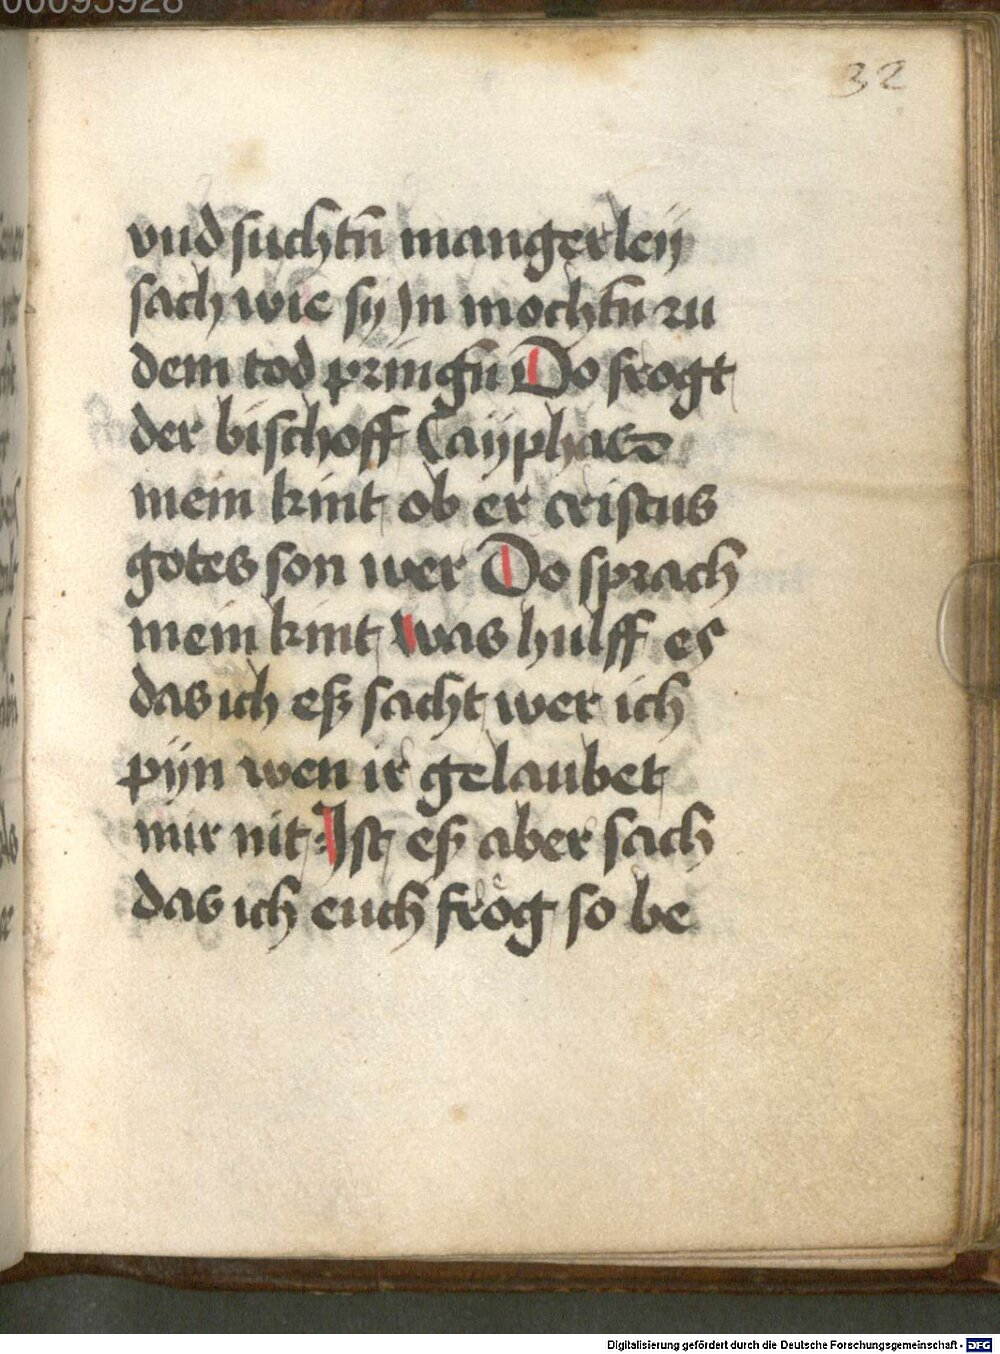 32
vnd suchtn̄ mangerleÿ
sach wie sy Jn mochtn̄ zu
dem tod pringn̄ Do frogt
der bischoff Caÿphas
mein kint ob er cristus
gotes son wer Do sprach
mein kint Was hulff es
das ich eß sacht wer ich
pÿn wen ir gelaubet
mir nit Ist eß aber sach
das ich euch frog so be
Digitalisierung gefördert durch die Deutsche Forschungsgemeinschaft - DFG